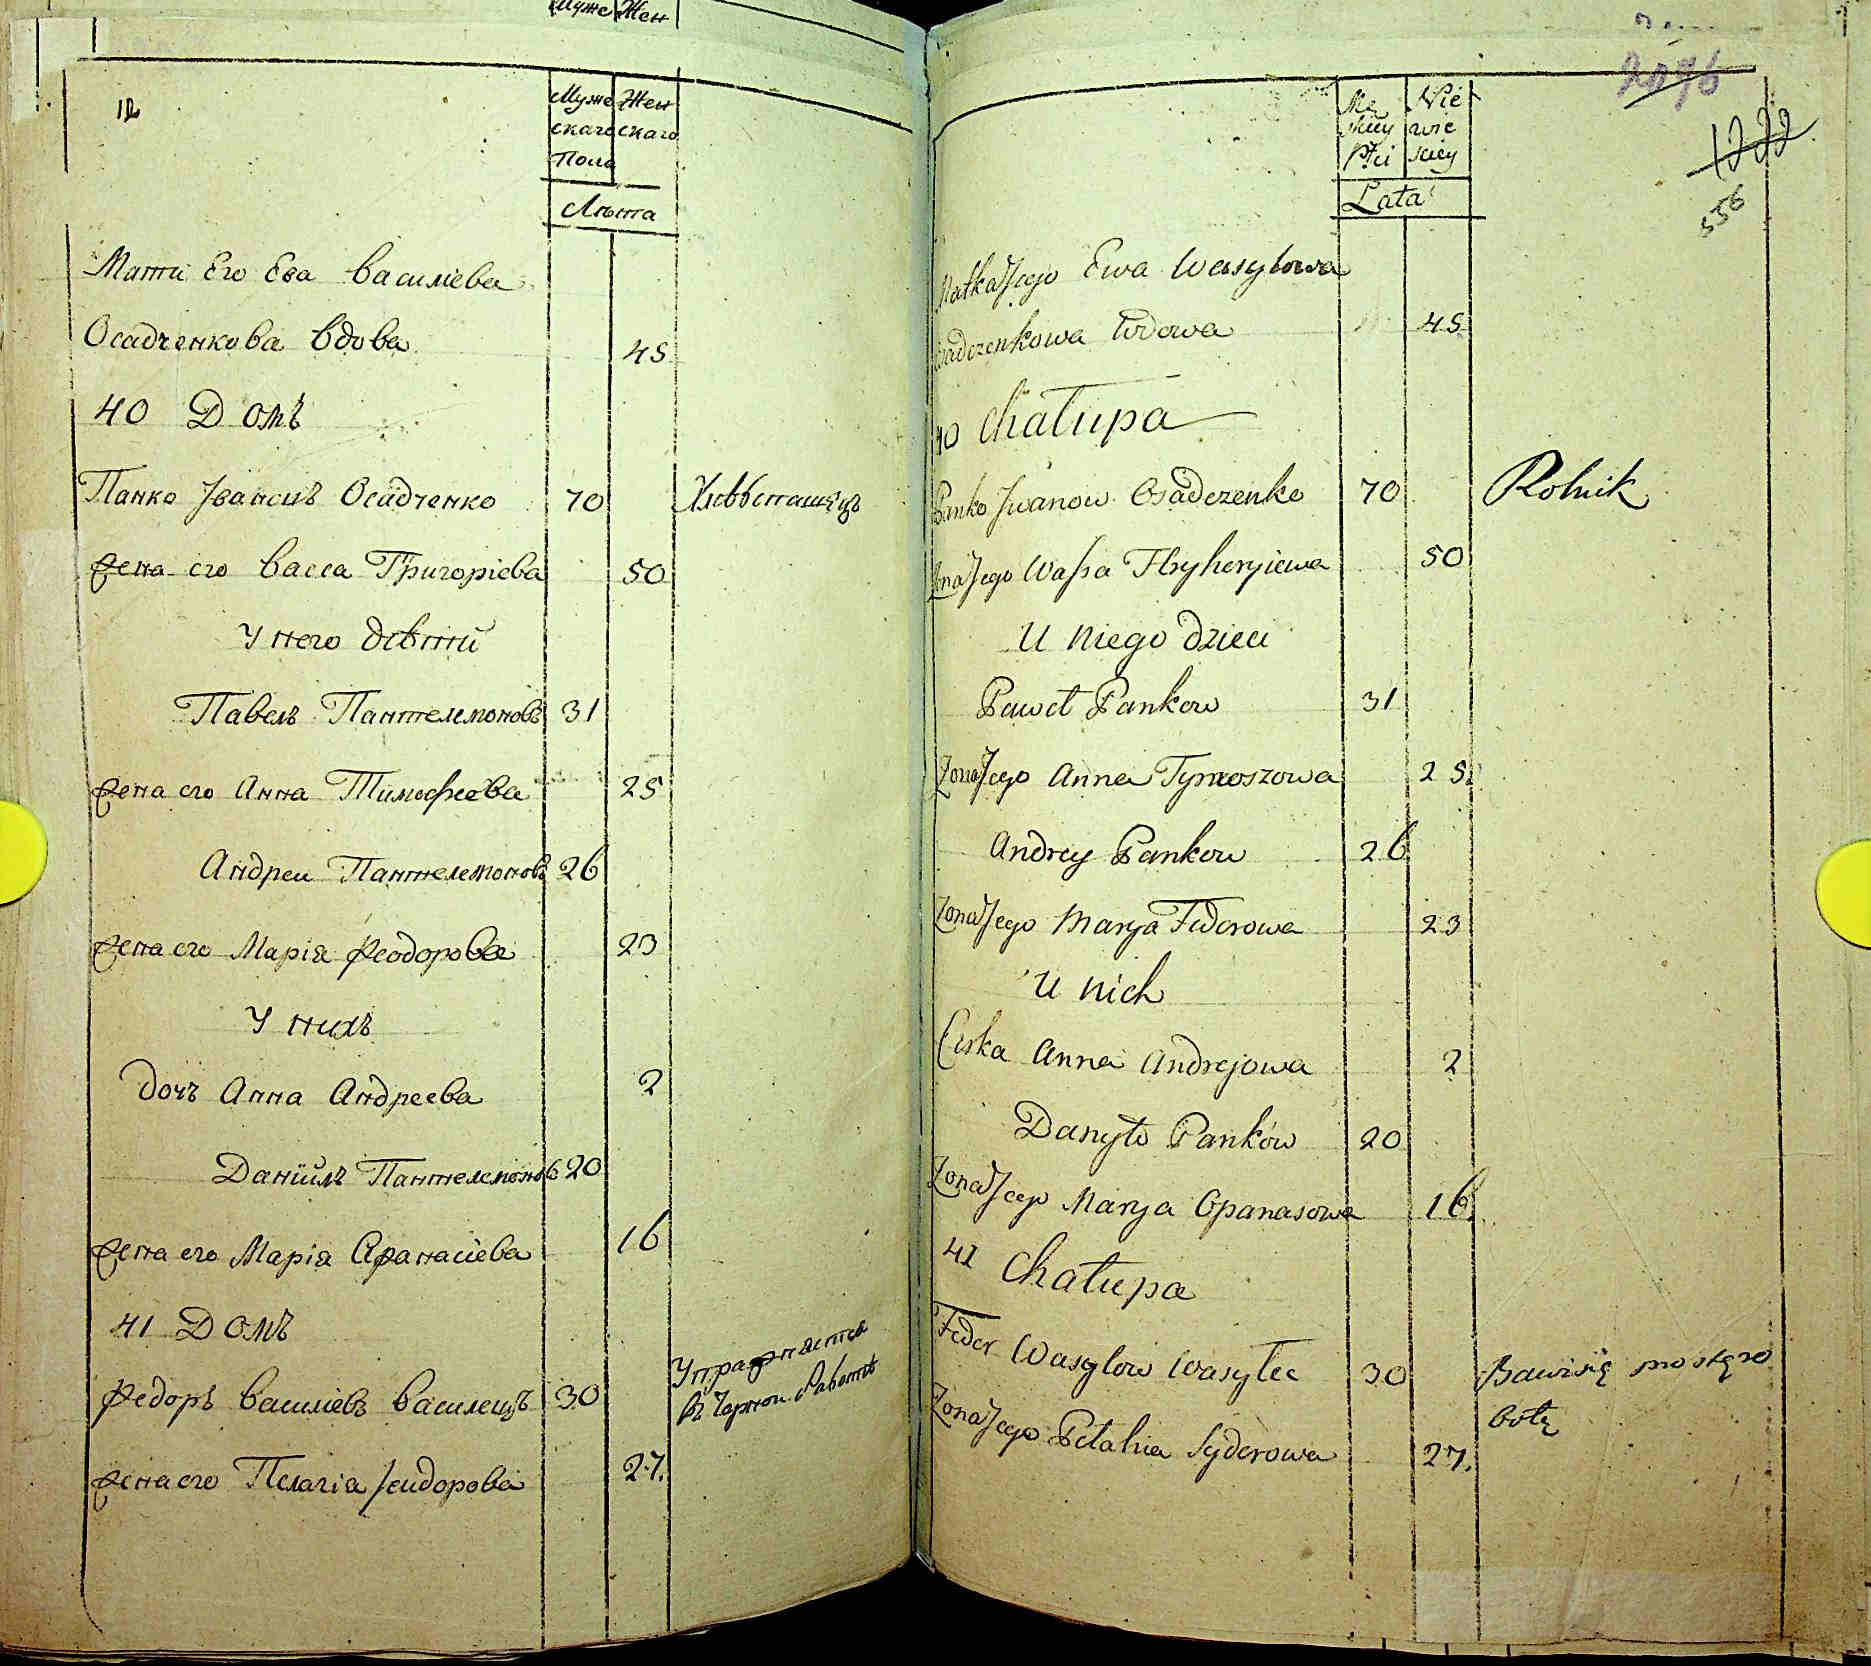 Муже Жен
12
Муже Жен
скаго скаго
Пола
Лѣта
Мати Его Ева Василіева
Осадченкова Вдова 45
40 Домъ
Панко Ивановъ Осадченко 70 Хлѣбопашецъ
Жена его Васса Григоріева 50
У него дѣти
Павелъ Пантелемоновъ 31
Жена его Анна Тимофеева 25
Андреи Пантелемоновъ 26
Жена его Марія Феодорова 23
У нихъ
Дочъ Анна Андреева 2
Даніилъ Пантелемоновъ 20
Жена его Марія Афанасіева 16
41 Домъ
Федоръ Василіевъ Василецъ 30 Упражняется
въ Чорной Работѣ
Жена его Пелагія Сидорова 27.
2096
1222
556
Mę Nie
skiey wie
Płci skiey
Lata
Matka Jego Ewa Wasylowa
Osadczenkowa Wdowa 45
40 Chałupa
Panko Jwanow Osadczenko 70 Rolnik
Zona Jego Wassa Hryhoryiewa 50
U niego dzieci
Paweł Pankow 31
Zona Jego Anna Tymoszowa 25.
Andrey Pankow 26
Zona Jego Marya Fedorowa 23
U nich
Curka Anna Andrejowa 2
Danyło Panków 20
Zona Jego Marya Opanasowa 16.
41 Chałupa
Fedor Wasylow Wasylec 30 Bawi się prostą ro
botą
Zona Jego Pelahia Syderowa 27.